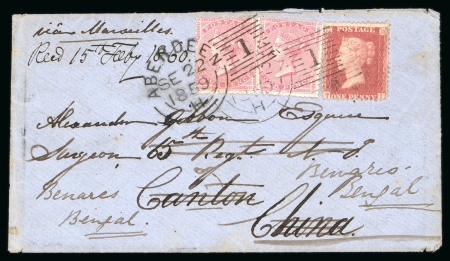 via Marseilles.
Recd 15th Feby 1860.
ABERDEEN
1
1
SE 22
1859
Alexander Gibbon Esquire
Surgeon 65th Regt N.I.
Benares
Canton
Benares
Bengal
Bengal
China